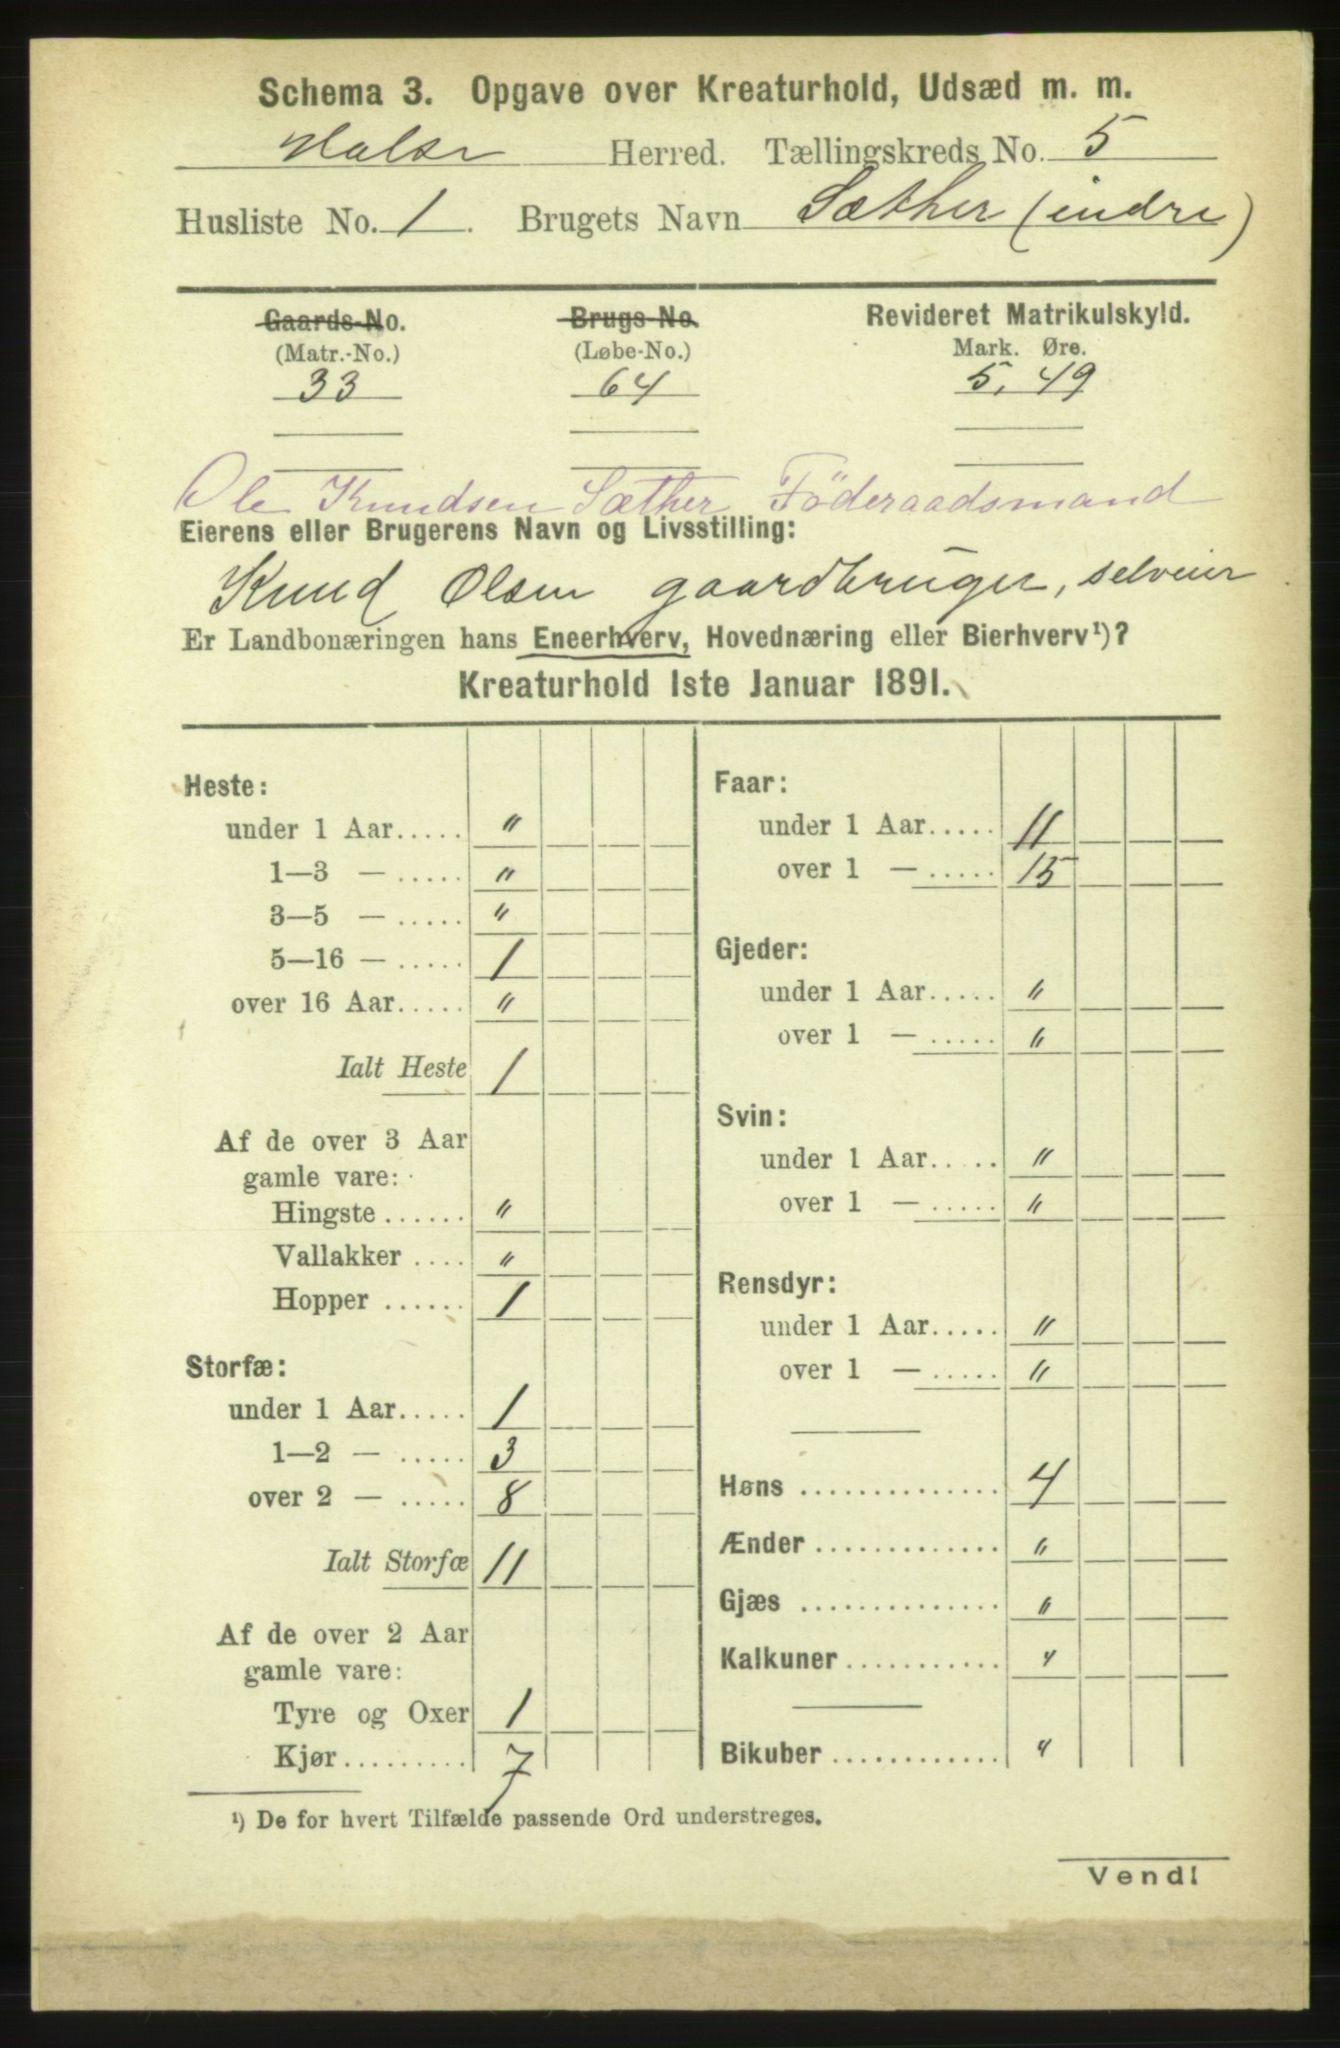 Schema 3. Opgave over Kreaturhold, Udsæd m. m.
Halse Herred. Tællingskreds No. 5
Husliste No. 1. Brugets Navn Sæther (indre)
Gaards-No. Brugs-No. Revideret Matrikulskyld.
(Matr.-No.) (Løbe-No.) Mark. Øre.
33 64 5, 49
Ole Knudsen Sæther Föderaadsmand
Eierens eller Brugerens Navn og Livsstilling:
Knud Olsen gaardbruger, selveier
Er Landbonæringen hans Eneerhverv, Hovednæring eller Bierhverv¹)?
Kreaturhold 1ste Januar 1891.
Heste:
under 1 Aar..... "
1—3 — ..... "
3—5 — ..... "
5—16 — ..... 1
over 16 Aar..... "
Ialt Heste 1
Af de over 3 Aar
gamle vare:
Hingste ...... "
Vallakker .... "
Hopper ...... 1
Storfæ:
under 1 Aar..... 1
1—2 — ..... 3
over 2 — ..... 8
Ialt Storfæ 11
Af de over 2 Aar
gamle vare:
Tyre og Oxer 1
Kjør.......... 7
Faar:
under 1 Aar..... 11
over 1 — ..... 15
Gjeder:
under 1 Aar..... "
over 1 — ..... "
Svin:
under 1 Aar..... "
over 1 — ..... "
Rensdyr:
under 1 Aar..... "
over 1 — ..... "
Høns .............. 4
Ænder ............. "
Gjæs .............. "
Kalkuner ........... "
Bikuber ............. "
¹) De for hvert Tilfælde passende Ord understreges.
Vend!